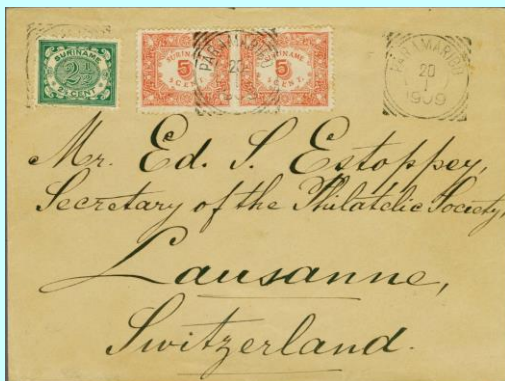 SURINAME
2½
2½ CENT
SURINAME
5
5 CENT.
SURINAME
5
5 CENT.
PARAMARIBO
20
PARAMARIBO
20
1
1909
Mr. Ed. S. Estoppey,
Secretary of the Philatelic Society,
Lausanne,
Switzerland.